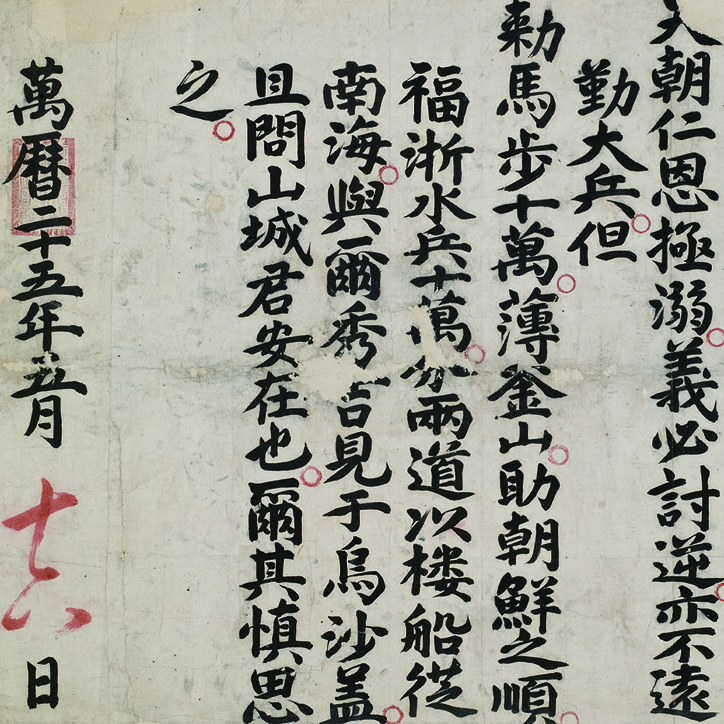 天朝仁恩極溺義必討逆亦不遠
勤大兵但
勅馬步十萬薄釜山助朝鮮之順
福浙水兵十萬分兩道以楼船從
南海與爾秀吉見于烏沙盖
且問山城君安在也爾其慎思
之
萬曆二十五年五月十六日